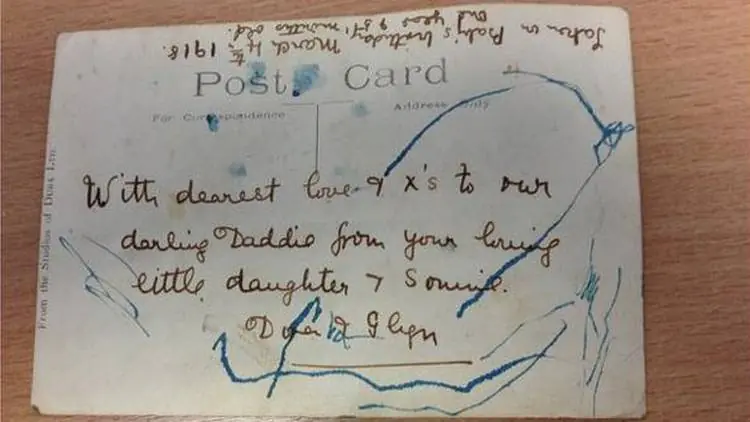 Taken on Baby's birthday March 4th 1918.
One year & months old.
Post Card
For Correspondence
Address Only
With dearest love & x's to our
darling Daddie from your loving
little daughter & Sonnie.
& Glyn
From the Studios of Ltd.